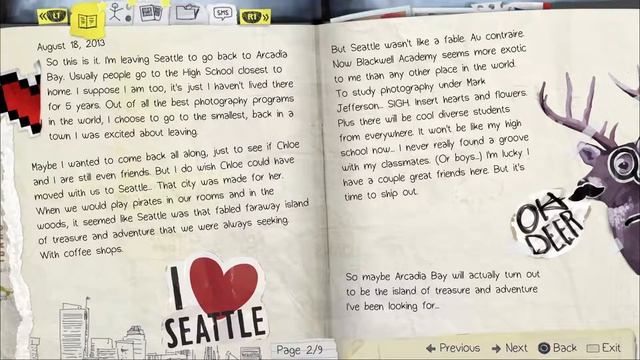 LT
SMS
R1
August 18, 2013
So this is it. I'm leaving Seattle to go back to Arcadia
Bay. Usually people go to the High School closest to
home. I suppose I am too, it's just I haven't lived there
for 5 years. Out of all the best photography programs
in the world, I choose to go to the smallest, back in a
town I was excited about leaving.
Maybe I wanted to come back all along, just to see if Chloe
and I are still even friends. But I do wish Chloe could have
moved with us to Seattle... That city was made for her.
When we would play pirates in our rooms and in the
woods, it seemed like Seattle was that fabled faraway island
of treasure and adventure that we were always seeking.
With coffee shops.
I
SEATTLE
But Seattle wasn't like a fable. Au contraire.
Now Blackwell Academy seems more exotic
to me than any other place in the world.
To study photography under Mark
Jefferson... SIGH. Insert hearts and flowers.
Plus there will be cool diverse students
from everywhere. It won't be like my high
school now... I never really found a groove
with my classmates. (Or boys...) I'm lucky I
have a couple great friends here. But it's
time to ship out.
OH
DEER
So maybe Arcadia Bay will actually turn out
to be the island of treasure and adventure
I've been looking for...
Page 2/9
Previous
Next
Back
Exit